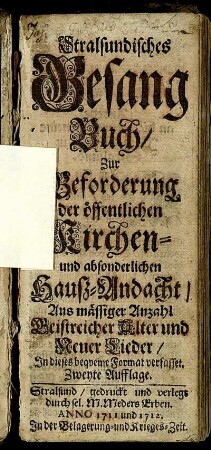 Stralsundisches
Gesang
Buch/
Zur
Beforderung
der öffentlichen
Kirchen-
und absonderlichen
Hauß-Andacht/
Aus mässiger Anzahl
Geistreicher Alter und
Neuer Lieder/
In dieses beqveme Format verfasset.
Zweyte Aufflage.
Stralsund/ gedruckt und verlegt
durch sel. M. Meders Erben.
ANNO 1711 und 1712.
In der Belagerung-und Krieges-Zeit.